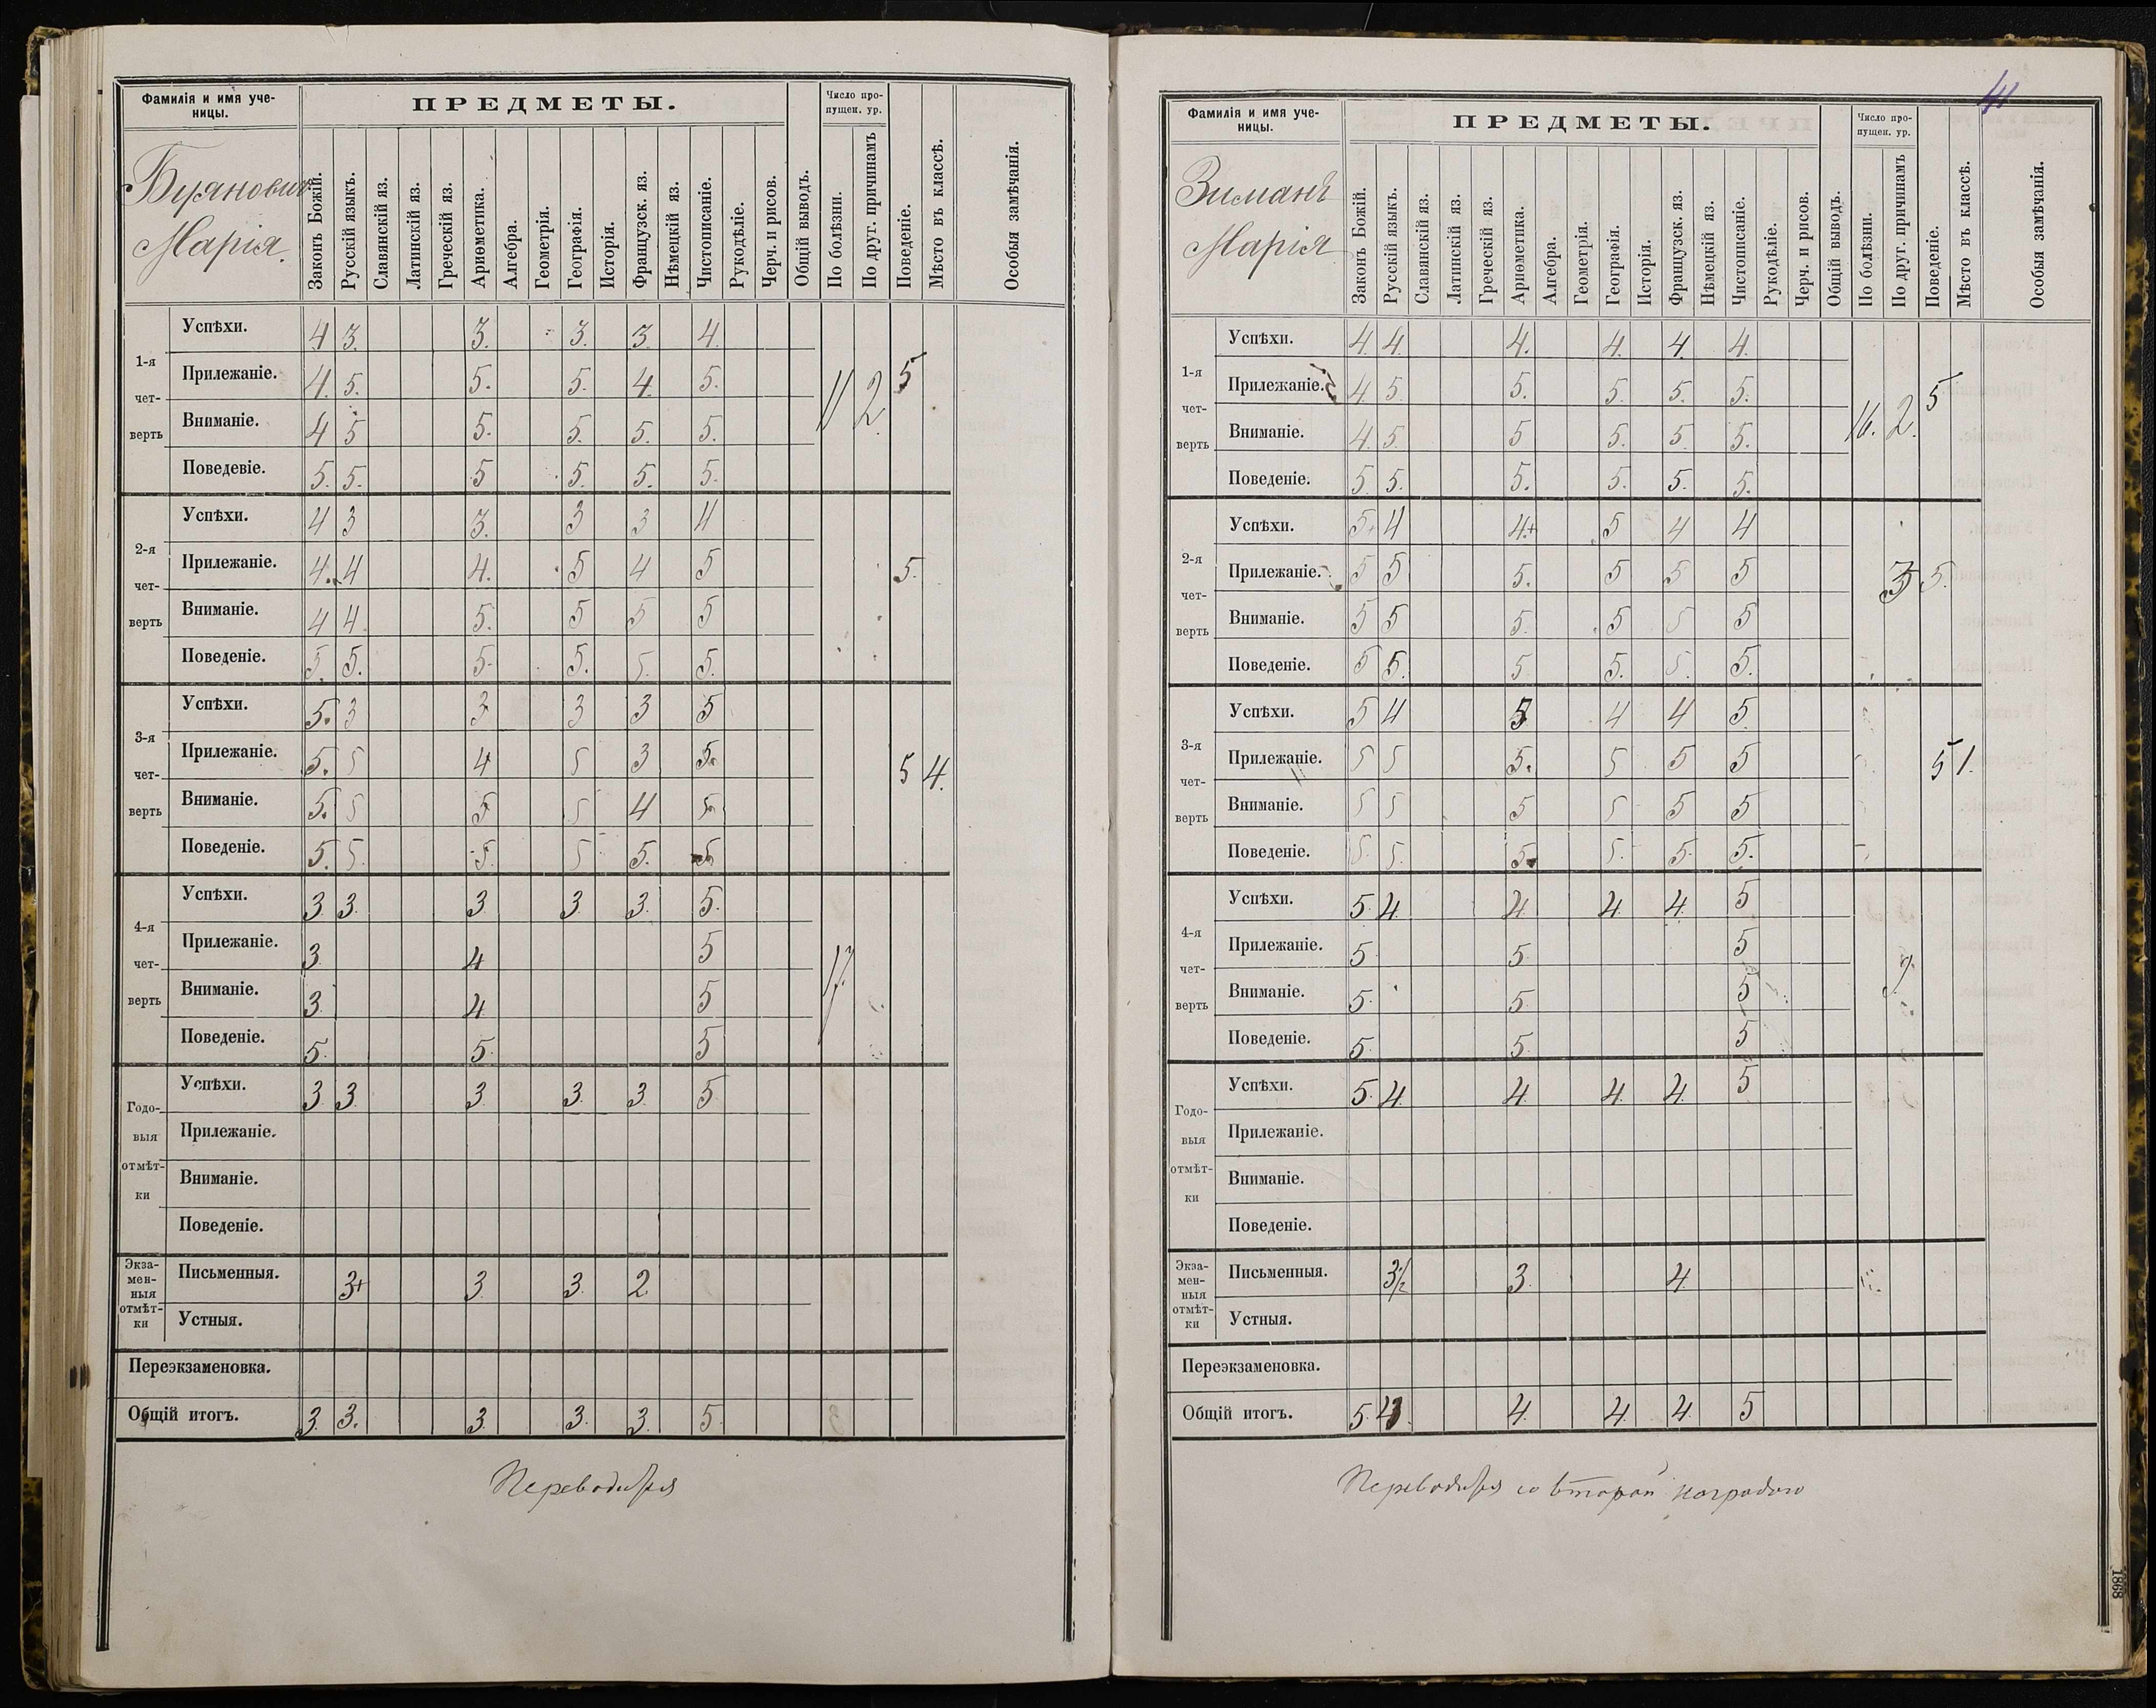 Фамилія и имя уче-
ницы.
Буяновичъ
Марія.
ПРЕДМЕТЫ.
Законъ Божій.
Русскій языкъ.
Славянскій яз.
Латинскій яз.
Греческій яз.
Ариѳметика.
Алгебра.
Геометрія.
Географія.
Исторія.
Французск. яз.
Нѣмецкій яз.
Чистописаніе.
Рукодѣліе.
Черч. и рисов.
Общій выводъ.
Число про-
пущен. ур.
По болѣзни.
По друг. причинамъ
Поведеніе.
Мѣсто въ классѣ.
Особыя замѣчанія.
1-я чет- верть
Успѣхи. 4. 3. 3. 3. 3. 4.
Прилежаніе. 4. 5. 5. 5. 4. 5.
Вниманіе. 4 5 5. 5. 5. 5.
Поведевіе. 5. 5. 5 5. 5. 5.
11 2 5
2-я чет- верть
Успѣхи. 4 3 3. 3 3 4
Прилежаніе. 4. 4 4. 5 4 5
Вниманіе. 4 4. 5. 5 5 5
Поведеніе. 5. 5. 5. 5. 5. 5.
5.
3-я чет- верть
Успѣхи. 5. 3 3 3 3 5
Прилежаніе. 5. 5 4 5 3 5.
Вниманіе. 5. 5 5 5 4 5
Поведеніе. 5. 5. 5. 5 5. 5
5 4.
4-я чет- верть
Успѣхи. 3. 3. 3 3. 3. 5.
Прилежаніе. 3 4 5
Вниманіе. 3. 4 5
Поведеніе. 5. 5. 5
17
Годо- выя отмѣт- ки
Успѣхи. 3 3 3 3. 3. 5
Прилежаніе.
Вниманіе.
Поведеніе.
Экза- мен- ныя отмѣт- ки
Письменныя. 3+ 3 3. 2
Устныя.
Переэкзаменовка.
Общій итогъ. 3. 3. 3 3. 3. 5.
Переводится
41
Фамилія и имя уче-
ницы.
Зиманъ
Марія
ПРЕДМЕТЫ.
Законъ Божій.
Русскій языкъ.
Славянскій яз.
Латинскій яз.
Греческій яз.
Ариѳметика.
Алгебра.
Геометрія.
Географія.
Исторія.
Французск. яз.
Нѣмецкій яз.
Чистописаніе.
Рукодѣліе.
Черч. и рисов.
Общій выводъ.
Число про-
пущен. ур.
По болѣзни.
По друг. причинамъ
Поведеніе.
Мѣсто въ классѣ.
Особыя замѣчанія.
1-я чет- верть
Успѣхи. 4. 4. 4. 4. 4. 4.
Прилежаніе. 4 5 5. 5. 5. 5.
Вниманіе. 4. 5. 5 5. 5 5.
Поведеніе. 5 5. 5. 5. 5. 5.
16. 2. 5
2-я чет- верть
Успѣхи. 5. 4 4+ 5 4 4
Прилежаніе. 5 5 5. 5 5 5
Вниманіе. 5 5 5. 5 5 5
Поведеніе. 5 5. 5 5. 5. 5.
5.
3-я чет- верть
Успѣхи. 5 4 5 4 4 5
Прилежаніе. 5 5 5. 5 5 5
Вниманіе. 5 5 5 5 5 5
Поведеніе. 5. 5. 5. 5. 5 5.
5 1.
4-я чет- верть
Успѣхи. 5. 4. 4 4. 4. 5
Прилежаніе. 5 5 5
Вниманіе. 5. 5. 5
Поведеніе. 5 5. 5
Годо- выя отмѣт- ки
Успѣхи. 5. 4. 4. 4. 4. 5
Прилежаніе.
Вниманіе.
Поведеніе.
Экза- мен- ныя отмѣт- ки
Письменныя. 3½ 3. 4
Устныя.
Переэкзаменовка.
Общій итогъ. 5. 4. 4. 4. 5
Переводится со второй наградою
1868